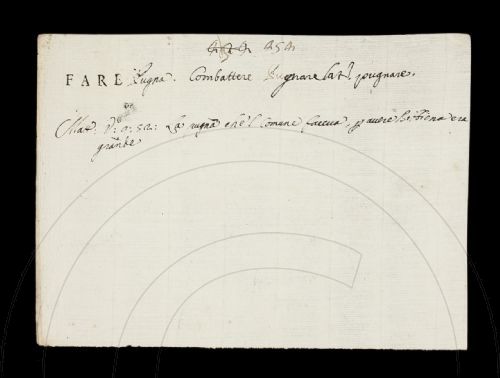 454 454
FARE Pugna. Combattere Pugnare lat. pugnare.
Mat. V: 9: 52: La pugna che'l Comune faceva, p avere Bibbiena era
grande